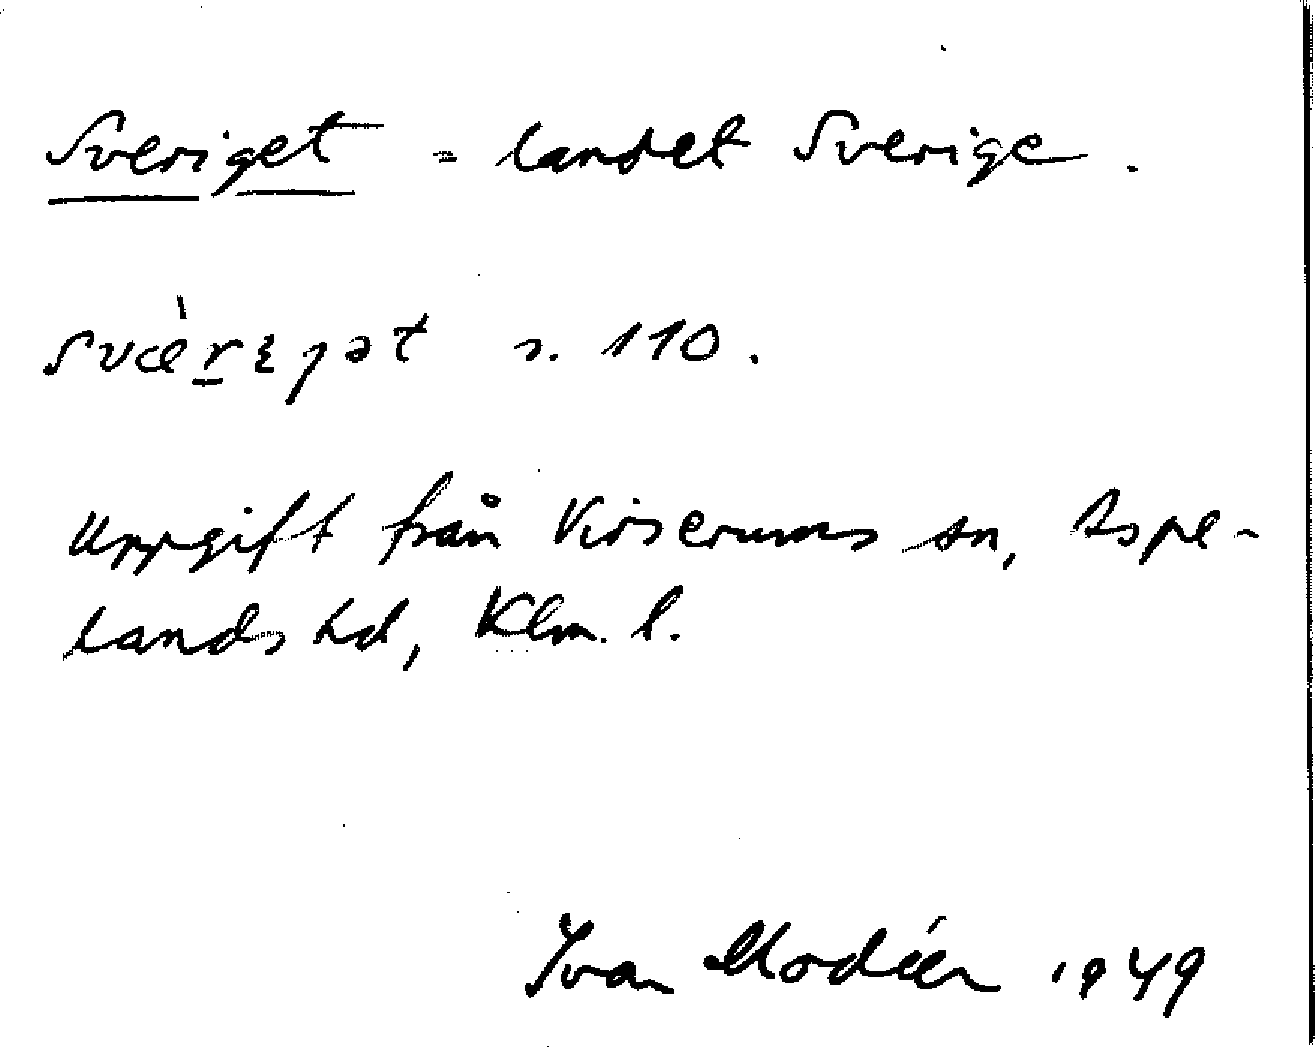 Sveriget = landet Sverige.
n. 110.
Uppgift från Virserums sn, Aspe-
lands hd, Klm. l.
Ivar Modéer 1949